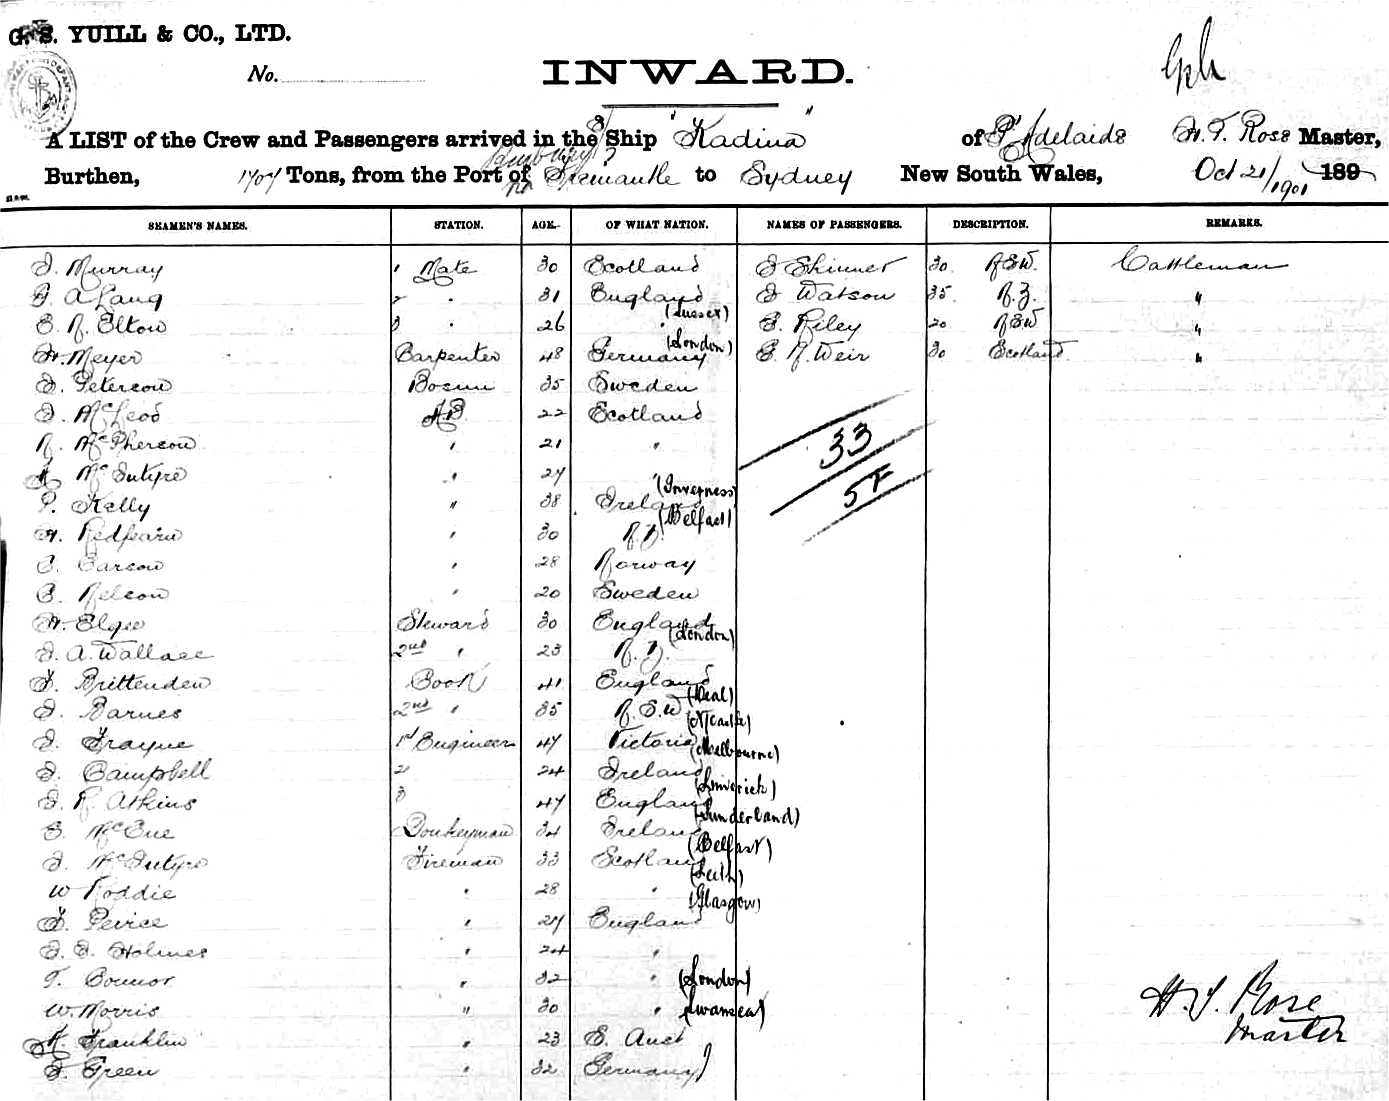 G. S. YUILL & CO., LTD.
No.
INWARD.
A LIST of the Crew and Passengers arrived in the S/ Ship "Kadina" of Pt Adelaide H. T. Rose Master,
Burthen, 1707 Tons, from the Port of Bunbury? Fremantle to Sydney New South Wales, Oct 21/1901 189
SEAMEN'S NAMES. STATION. AGE. OF WHAT NATION. NAMES OF PASSENGERS. DESCRIPTION. REMARKS.
J. Murray 1 Mate 30 Scotland J Skinner 30 NSW. Cattleman
A Lang 2 " 31 England (Sussex) J Watson 35 N.Z. "
E. N. Elton 3 " 26 " (London) E. Riley 20 NSW "
H. Meyer Carpenter 48 Germany E. N. Weir 30 Scotland "
J. Peterson Bosun 35 Sweden
J. McLeod AB 22 Scotland
N. McPherson " 21 "
McIntyre " 27 " (Inverness)
P. Kelly " 38 Ireland (Belfast)
H. Redfearn " 30 N.Z.
C. Carson " 28 Norway
C. Nelson " 20 Sweden
H. Elgee Steward 30 England (London)
J. A. Wallace 2nd " 23 N.Z.
F. Brittenden Cook 41 England (Deal)
J. Barnes 2nd " 35 N.S.W (NCastle)
J. Frayne 1st Engineer 47 Victoria (Melbourne)
J. Campbell 2 24 Ireland (Limerick)
J. N. Atkins 3 47 England (Sunderland)
E. McCue Donkeyman 34 Ireland (Belfast)
J. McIntyre Fireman 33 Scotland (Leith)
W Roddie " 28 " (Glasgow)
F. Peirce " 27 England
J. J. Holmes " 24 "
T. Connor " 32 " (London)
W. Morris " 30 " (Swansea)
Franklin " 23 S. Aust
F. Green " 32 Germany
33
5F
H. T. Rose
master